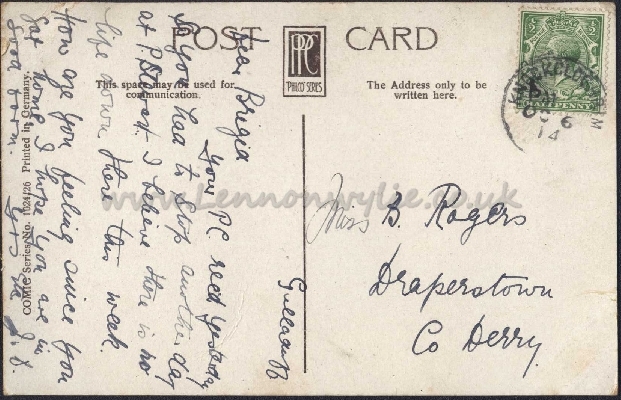 POST CARD
PPC
"PHILCO" SERIES
This space may be used for
communication.
The Address only to be
written here.
HALFPENNY
OC 6
14
Dear Brigid
Your P.C. recd yesterday
so you had to stop another day
at P. Stewart I believe there is no
life down there this week.
How are you feeling since you
Got home, I hope you are in
Good form.
Miss B. Rogers
Draperstown
Co Derry
COMIC Series No. 1024/26 Printed in Germany.
www.Lennonwylie.co.uk